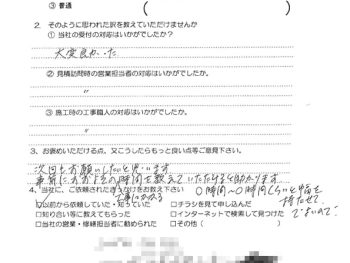 ③ 普通 (
2. そのように思われた訳を教えていただけませんか
① 当社の受付の対応はいかがでしたか?
大変良かった
② 見積訪問時の営業担当者の対応はいかがでしたか。
〃
③ 施工時の工事職人の対応はいかがでしたか。
〃
3、お褒めいただける点、又こうしたらもっと良い点等ご意見下さい。
次回もお願いしたいと思います
事前におおよその時間を教えていただけると助かります。
工事にかかる
0時間〜0時間くらいと幅を持たせて
でよいので
4、当社に、ご依頼されたきっかけをお教え下さい
以前から依頼していた・知っていた □チラシを見て申し込んだ
□知り合い等に教えてもらった □インターネットで検索して見つけた
□当社の営業・修繕担当者に勧められた □その他(